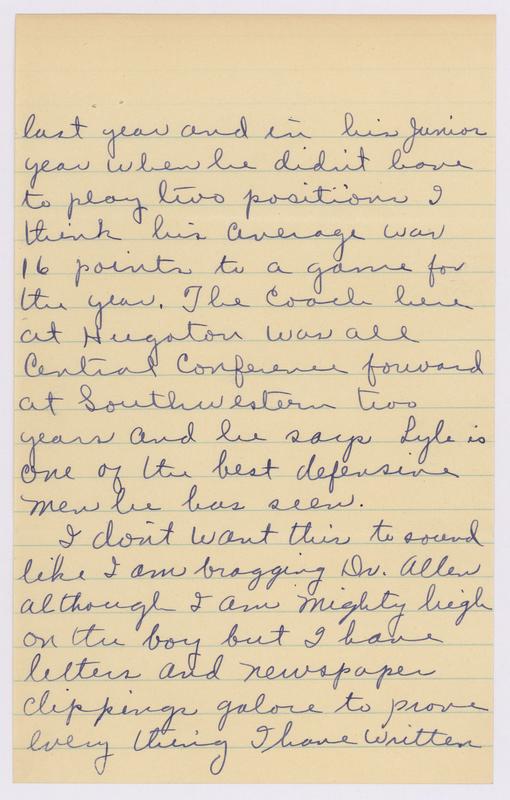 last year and in his Junior
year when he didn't have
to play two positions I
think his average was
16 points to a game for
the year. The Coach here
at Hugoton was all
Central Conference forward
at Southwestern two
years and he says Lyle is
one of the best defensive
men he has seen.
I don't want this to sound
like I am bragging Dr. Allen
although I am mighty high
on the boy but I have
letters and newspaper
clippings galore to prove
every thing I have written